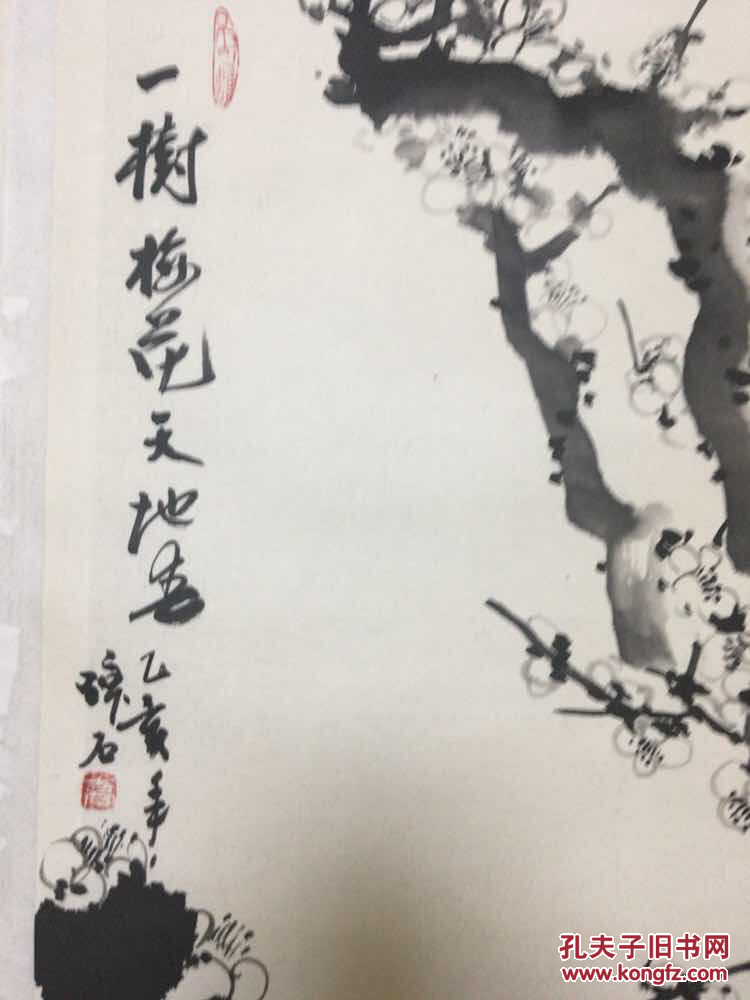 一樹梅花天地春
乙亥年
石
孔夫子旧书网
www.kongfz.com